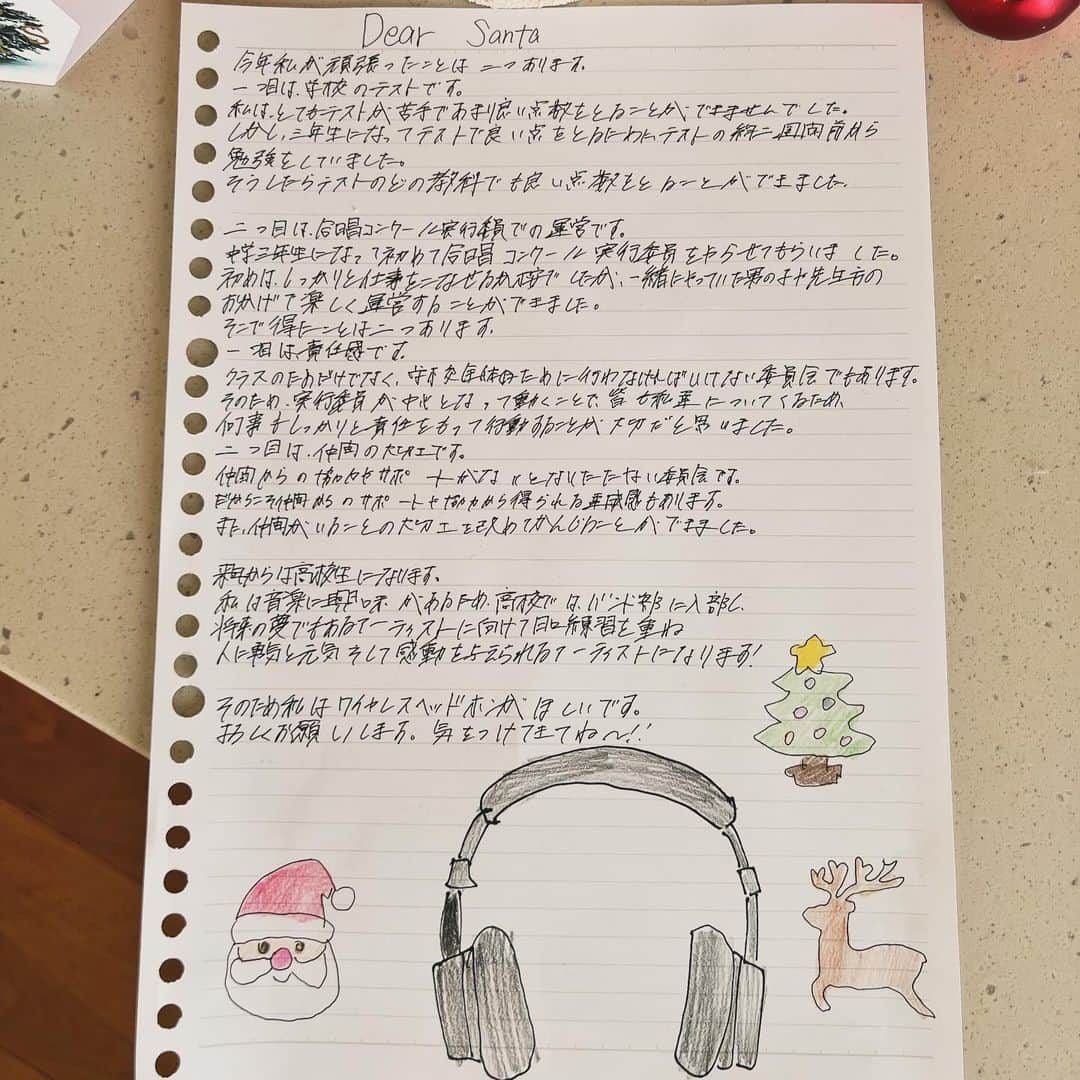 Dear Santa
今年私が頑張ったことは二つあります。
一つ目は、学校のテストです。
私は、とてもテストが苦手であまり良い点数をとることができませんでした。
しかし、三年生になってテストで良い点をとるために、テストの約二週間前から
勉強をしていました。
そうしたらテストのどの教科でも良い点数をとることができました。
二つ目は、合唱コンクール実行委員での運営です。
中学三年生になって初めて合唱コンクール実行委員をやらせてもらいました。
初めは、しっかりと仕事をこなせるか不安でしたが、一緒にやっていた男の子や先生方の
おかげで楽しく運営することができました。
そこで得たことは二つあります。
一つ目は、責任感です。
クラスのためだけでなく、学校全体のために行わなければいけない委員会でもあります。
そのため、実行委員が中心となって動くことで、皆も私達についてくるため、
何事もしっかりと責任をもって行動することが大切だと思いました。
二つ目は、仲間の大切さです。
仲間からの協力やサポートがないとなりたたない委員会です。
だからこそ仲間からのサポートや協力から得られる達成感もあります。
また、仲間がいることの大切さを改めてかんじることができました。
来年からは高校生になります。
私は音楽に興味があるため、高校では、バンド部に入部し、
将来の夢でもあるアーティストに向けて日々練習を重ね
人に勇気と元気そして感動を与えられるアーティストになります!
そのため私はワイヤレスヘッドホンがほしいです。
よろしくお願いします。気をつけてきてね〜!!